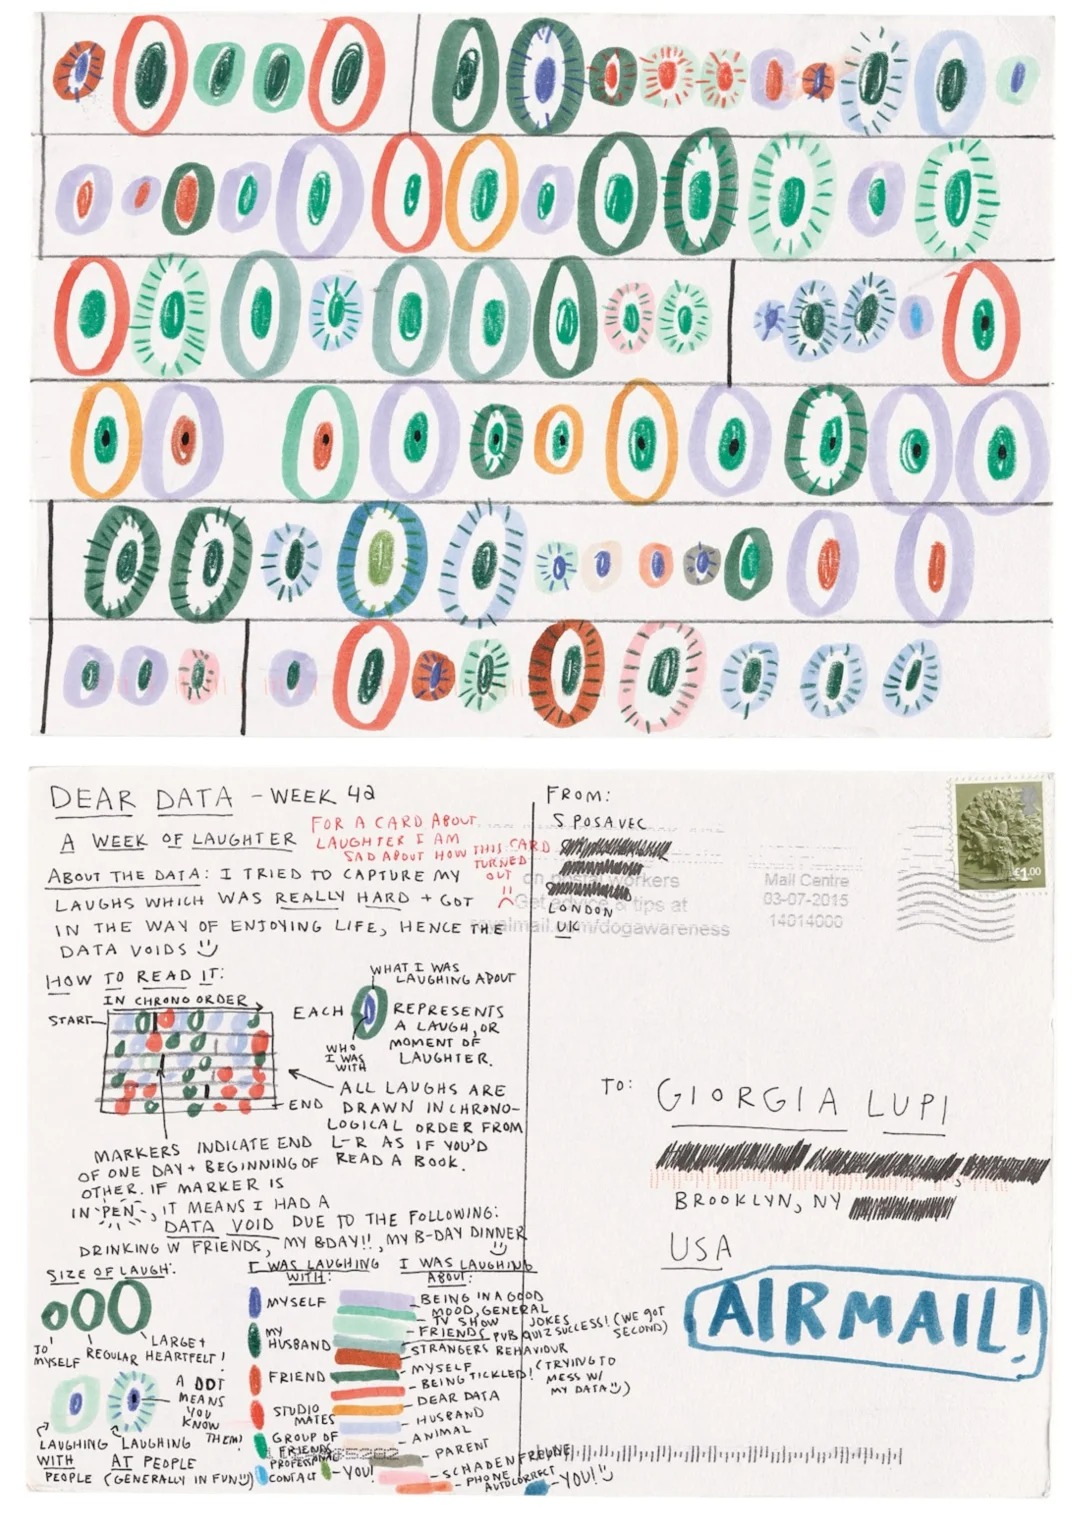 DEAR DATA - WEEK 42
A WEEK OF LAUGHTER
FOR A CARD ABOUT
LAUGHTER I AM
SAD ABOUT HOW THIS CARD
TURNED
OUT
ABOUT THE DATA: I TRIED TO CAPTURE MY
LAUGHS WHICH WAS REALLY HARD + GOT
IN THE WAY OF ENJOYING LIFE, HENCE THE
DATA VOIDS
HOW TO READ IT:
IN CHRONO ORDER
START
END
WHAT I WAS
LAUGHING ABOUT
EACH
REPRESENTS
A LAUGH, OR
MOMENT OF
LAUGHTER.
WHO
I WAS
WITH
ALL LAUGHS ARE
DRAWN IN CHRONO-
LOGICAL ORDER FROM
L-R AS IF YOU'D
READ A BOOK.
MARKERS INDICATE END
OF ONE DAY + BEGINNING OF
OTHER. IF MARKER IS
IN PEN, IT MEANS I HAD A
DATA VOID DUE TO THE FOLLOWING:
DRINKING W FRIENDS, MY BDAY!!, MY B-DAY DINNER
SIZE OF LAUGH:
TO MYSELF
REGULAR
LARGE + HEARTFELT!
A DOT
MEANS
YOU
KNOW
THEM!
LAUGHING
WITH
PEOPLE
LAUGHING
AT PEOPLE
(GENERALLY IN FUN)
I WAS LAUGHING
WITH:
MYSELF
MY
HUSBAND
FRIEND
STUDIO
MATES
GROUP OF
FRIENDS
PROFESSIONAL
CONTACT
YOU!
I WAS LAUGHING
ABOUT:
BEING IN A GOOD
MOOD, GENERAL
TV SHOW
FRIENDS JOKES
PUB QUIZ SUCCESS! (WE GOT
SECOND)
STRANGERS BEHAVIOUR
MYSELF
BEING TICKLED! (TRYING TO
MESS W/
MY DATA)
DEAR DATA
HUSBAND
ANIMAL
PARENT
SCHADENFREUDE
PHONE
AUTOCORRECT
YOU!
FROM:
S POSAVEC
LONDON
UK
on postal workers
Get advice & tips at
royalmail.com/dogawareness
Mail Centre
03-07-2015
14014000
£1.00
TO:
GIORGIA LUPI
BROOKLYN, NY
USA
AIRMAIL!